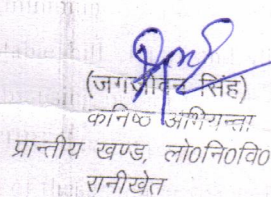 (जगजीवन सिंह)
कनिष्ठ अभियन्ता
प्रान्तीय खण्ड, लो०नि०वि०
रानीखेत